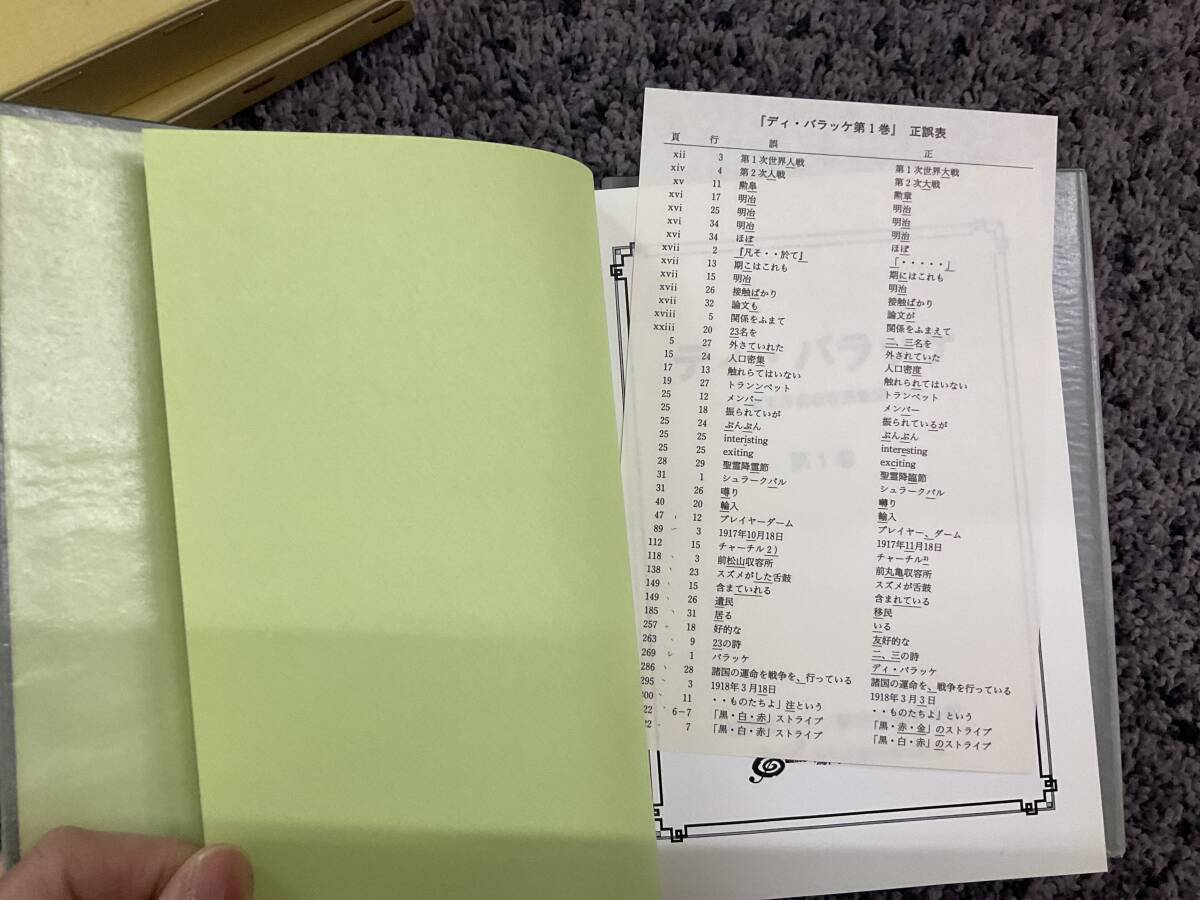 『ディ・バラッケ第1巻』 正誤表
頁 行 誤 正
xii 3 第1次世界人戦 第1次世界大戦
xiv 4 第2次人戦 第2次大戦
xv 11 勲皐 勲章
xvi 17 明冶 明治
xvi 25 明冶 明治
xvi 34 明冶 明治
xvi 34 ほぼ ほぼ
xvii 2 『凡そ・・於て』 「・・・・・」
xvii 13 期こはこれも 期にはこれも
xvii 15 明冶 明治
xvii 26 接触ばかり 接触ばかり
xvii 32 論文も 論文が
xviii 5 関係をふまて 関係をふまえて
xxiii 20 23名を 二、三名を
5 27 外さていれた 外されていた
15 24 人口密集 人口密度
17 13 触れらてはいない 触れられてはいない
19 27 トランンペット トランペット
25 12 メンバー メンバー
25 18 振られていが 振られているが
25 24 ぷんぷん ぷんぷん
25 25 interisting interesting
25 25 exiting exciting
28 29 聖霊降霊節 聖霊降臨節
31 1 シュラークパル シュラークバル
31 26 囀り 囀り
40 20 輸入 輸入
47 12 プレイヤーダーム プレイヤー、ダーム
89 3 1917年10月18日 1917年11月18日
112 15 チャーチル2) チャーチル²⁾
118 3 前松山収容所 前丸亀収容所
138 23 スズメがした舌鼓 スズメが舌鼓
149 15 含まていれる 含まれている
149 26 遺民 移民
185 31 居る いる
257 18 好的な 友好的な
263 9 23の詩 二、三の詩
269 1 バラッケ ディ・バラッケ
286 28 諸国の運命を戦争を、行っている 諸国の運命を、戦争を行っている
295 3 1918年3月18日 1918年3月3日
300 11 ・・ものたちよ」注という ・・ものたちよ」という
22 6-7 「黒・白・赤」ストライプ 「黒・赤・金」のストライプ
22 7 「黒・白・赤」ストライプ 「黒・白・赤」のストライプ
ディ・バラッケ
第1巻